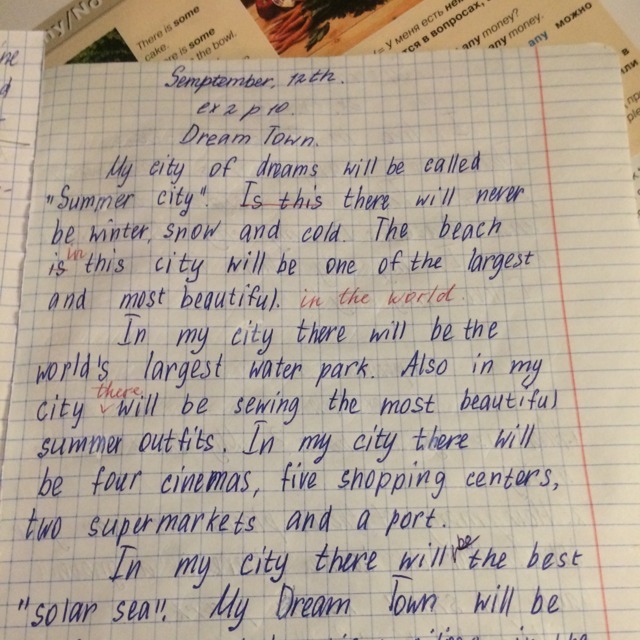 ty/No
There is some
cake.
There is some
the bowl.
= У меня есть
тся в вопросах,
any money?
any money.
any
можно
или
Semptember, 12th.
ex 2 p 10.
Dream Town.
My city of dreams will be called
"Summer city". Is this there will never
be winter, snow and cold. The beach
is in this city will be one of the largest
and most beautiful. in the world.
In my city there will be the
world's largest water park. Also in my
city there will be sewing the most beautiful
summer outfits. In my city there will
be four cinemas, five shopping centers,
two supermarkets and a port.
In my city there will be the best
"solar sea". My Dream Town will be